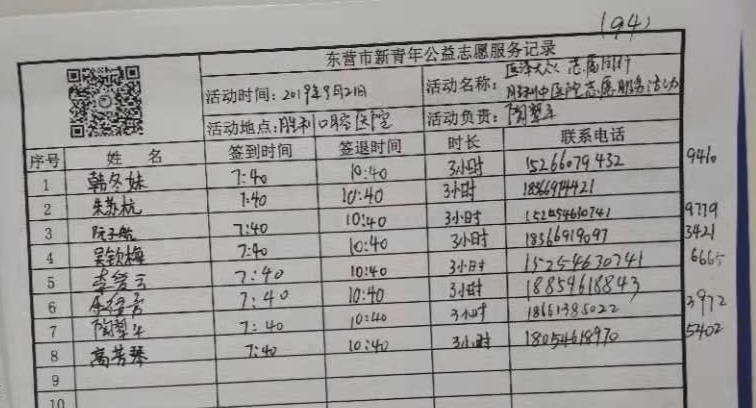 (94)
东营市新青年公益志愿服务记录
活动时间：2019年9月21日
活动名称：医泽大众 志愿同行
胜利中医院志愿服务活动
活动地点：胜利口腔医院
活动负责：陶翠平
序号 姓 名 签到时间 签退时间 时长 联系电话
1 韩冬妹 7:40 10:40 3小时 15266079432 9460
2 朱苏杭 7:40 10:40 3小时
3 阮子航 7:40 10:40 3小时 15254630741 9779
4 吴钦梅 7:40 10:40 3小时 18366919097 3421
5 7:40 10:40 3小时 15254630741 6665
6 7:40 10:40 3小时 18859618843
7 陶翠平 7:40 10:40 3小时 18661385022 3972
8 高芳琴 7:40 10:40 3小时 18054618970 52402
9
10